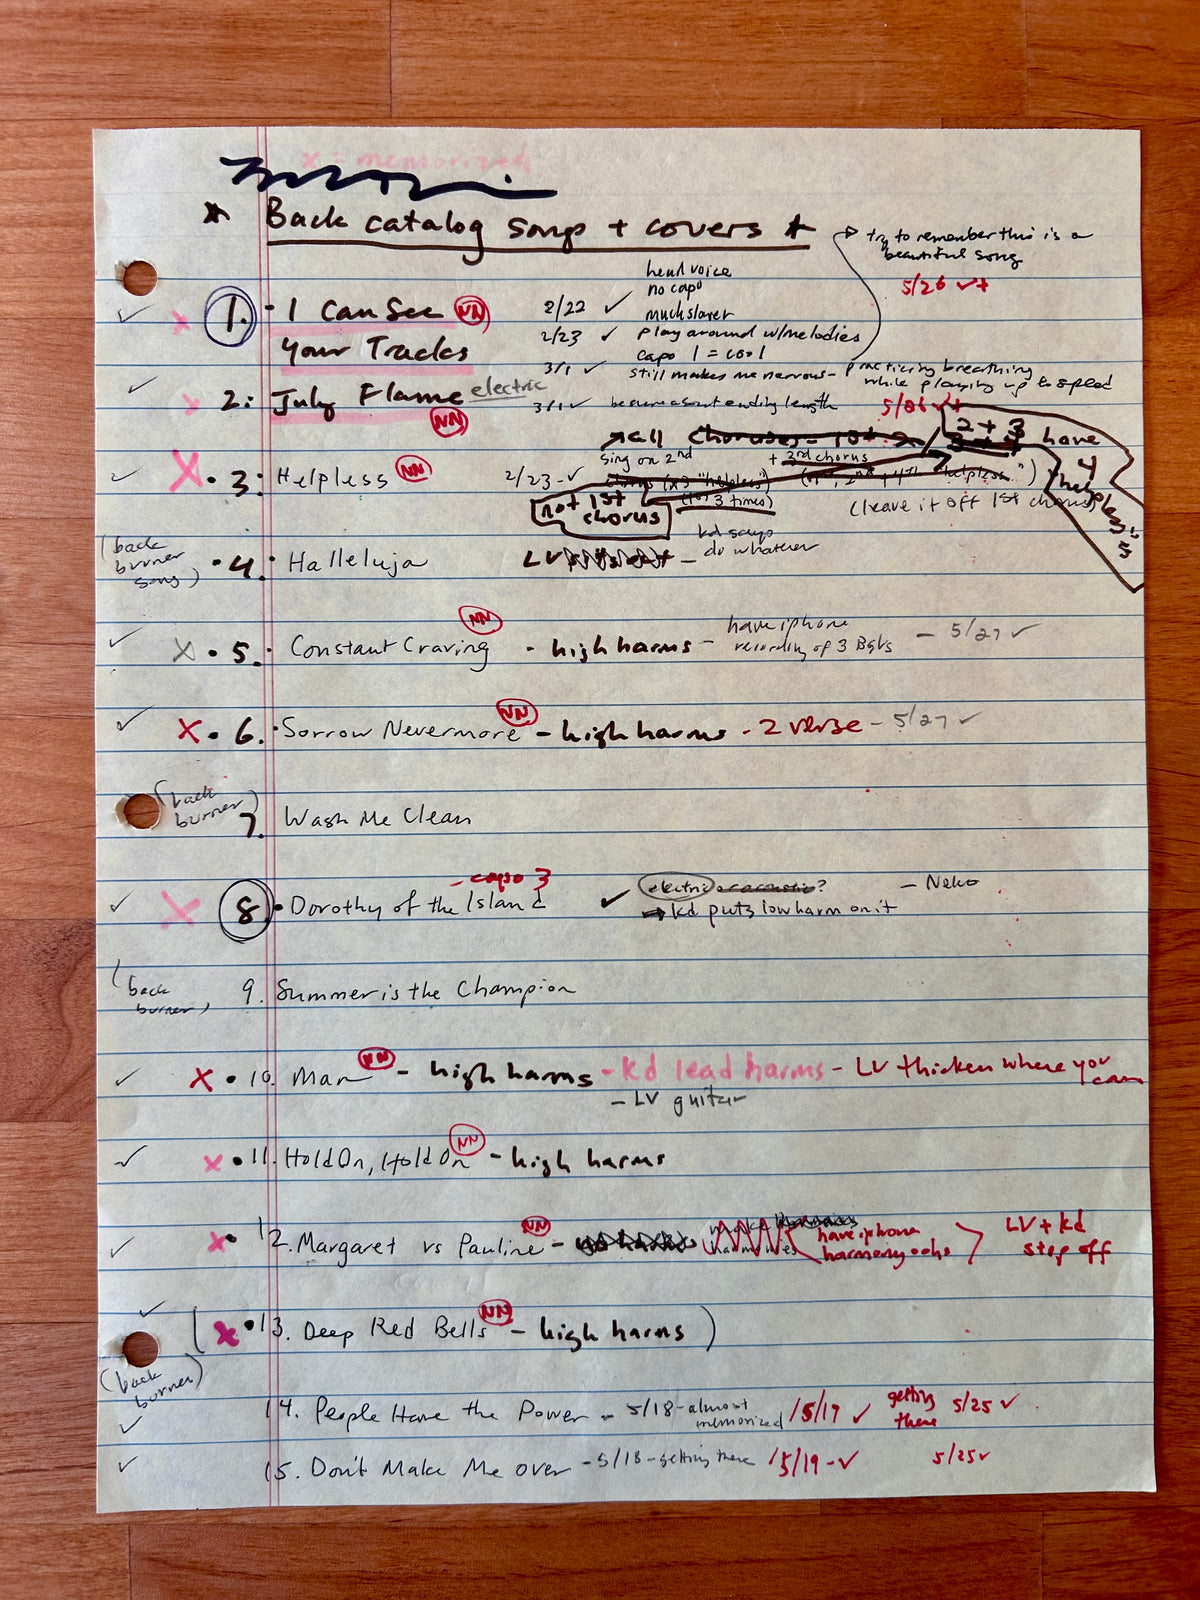 x = memorized
* Back catalog songs + covers *
→ try to remember this is a
beautiful song
5/26 ✓+
head voice
no capo
✓ x 1. I Can See NN 2/22 ✓ much slower
Your Tracks 2/23 ✓ play around w/melodies
capo 1 = cool
3/1 ✓ still makes me nervous - practicing breathing
while playing up to speed
✓ x 2. July Flame electric 3/1 ✓ be sure about ending length 5/26 ✓+
NN
all choruses - 1st + 2 / 2 + 3 have
4 helpless's
sing on 2nd + 3rd chorus
✓ X • 3. Helpless NN 2/23 - ✓ chorus (x3 "helpless") (1st, 2nd, 4th "helpless")
not 1st chorus 3 times) (leave it off 1st chorus)
(back burner song) • 4. Halleluja LV - kd says
do whatever
✓ X • 5. Constant Craving NN - high harms - have iphone
recording of 3 BGVs - 5/27 ✓
✓ X • 6. Sorrow Nevermore NN - high harms - 2 verse - 5/27 ✓
(back burner) 7. Wash Me Clean
- capo 3
✓ X 8. • Dorothy of the Island ✓ electric or acoustic? - Neko
→ kd puts low harm on it
(back burner) 9. Summer is the Champion
✓ X • 10. Man NN - high harms - kd lead harms - LV thicken where you can
- LV guitar
✓ x • 11. Hold On, Hold On NN - high harms
✓ x • 12. Margaret vs Pauline NN - no harms make harmonies
have iphone
harmony oohs
LV + kd
stop off
✓ ( x • 13. Deep Red Bells NN - high harms )
(back burner)
✓ 14. People Have the Power - 5/18 - almost
memorized / 5/19 ✓ getting
there 5/25 ✓
✓ 15. Don't Make Me Over - 5/18 - getting there / 5/19 - ✓ 5/25 ✓